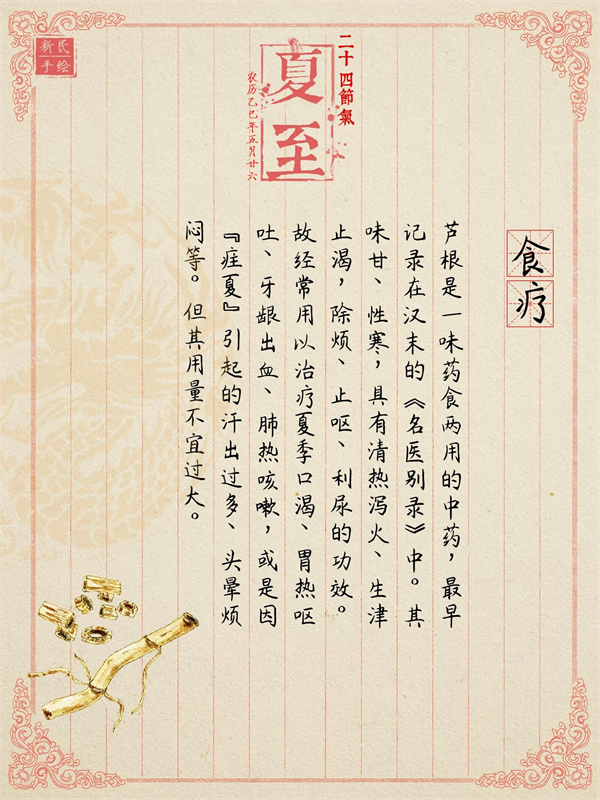 新民
手绘
二十四節氣
夏至
农历乙巳年五月廿六
食疗
芦根是一味药食两用的中药，最早
记录在汉末的《名医别录》中。其
味甘、性寒，具有清热泻火、生津
止渴，除烦、止呕、利尿的功效。
故经常用以治疗夏季口渴、胃热呕
吐、牙龈出血、肺热咳嗽，或是因
『疰夏』引起的汗出过多、头晕烦
闷等。但其用量不宜过大。